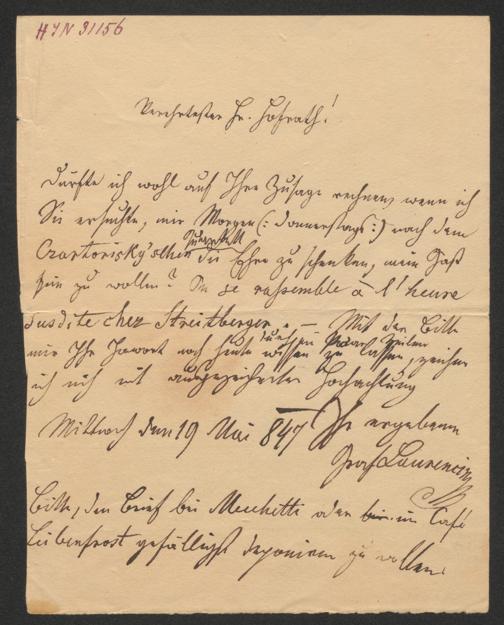 HIN 31156
Verehrtester Hr. Hofrath!
Dürfte ich wohl auf Ihre Zusage rechnen, wenn ich
Sie ersuchte, mir Morgen (: Donnerstags :) nach dem
Czartorisky'schen Quartett die Ehre zu schenken, mein Gast
sein zu wollen? On se rassemble à l'heure
susdite chez Streitberger. – Mit der Bitte
mir Ihr Jawort noch heute durch ein Paar Zeilen wissen zu lassen, zeichne
ich mich mit ausgezeichneter Hochachtung
Mittwoch den 19 Mai 847 Ihr ergebener
Graf Laurencin
Bitte, den Brief bei Mechetti oder bei im Café
Leibenfrost gefälligst deponiren zu wollen.